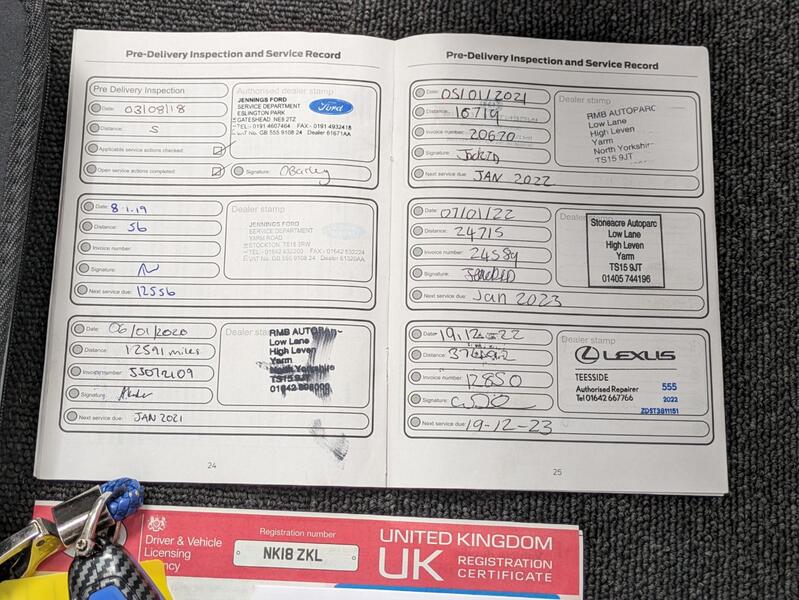 Pre-Delivery Inspection and Service Record
Pre Delivery Inspection
Date: 03/08/18
Distance: 5
Applicable service actions checked:
Open service actions completed:
Signature:
Authorised dealer stamp
JENNINGS FORD
SERVICE DEPARTMENT
ESLINGTON PARK
GATESHEAD NE8 2TZ
TEL:- 0191 4607464 FAX:- 0191 4932418
VAT No. GB 555 9108 24 Dealer 61671AA
Ford
Date: 8.1.19
Distance: 56
Invoice number:
Signature:
Next service due: 12556
Dealer stamp
JENNINGS FORD
SERVICE DEPARTMENT
YARM ROAD
STOCKTON TS18 3RW
TEL:- 01642 632200 FAX:- 01642 632224
VAT No. GB 555 9108 24 Dealer 61320AA
Date: 06/01/2020
Distance: 12591 miles
Invoice number:
Signature:
Next service due: JAN 2021
Dealer stamp
RMB AUTOPAR
Low Lane
High Leven
Yarm
North Yorkshire
TS15 9JT
24
Pre-Delivery Inspection and Service Record
Date: 05/01/2021
Distance: 16719
Invoice number: 20670
Signature:
Next service due: JAN 2022
Dealer stamp
RMB AUTOPARC
Low Lane
High Leven
Yarm
North Yorkshir
TS15 9JT
Date: 07/01/22
Distance: 24715
Invoice number: 24589
Signature:
Next service due: Jan 2023
Dealer
Stoneacre Autoparc
Low Lane
High Leven
Yarm
TS15 9JT
01405 744196
Date: 19.12-22
Distance:
Invoice number: 12850
Signature:
Next service due: 19-12-23
Dealer stamp
LEXUS
TEESSIDE
Authorised Repairer
Tel 01642 667766
555
2022
ZDST3811151
25
Driver & Vehicle
Licensing
ency
Registration number
NK18 ZKL
UNITED KINGDOM
UK REGISTRATION
CERTIFICATE